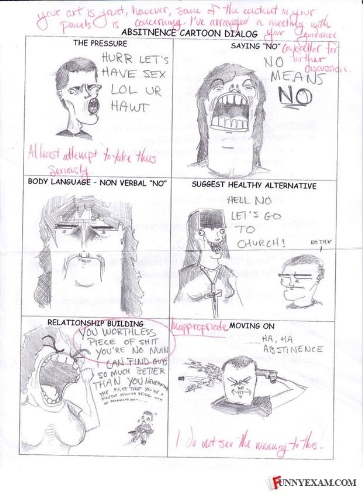 your art is great, however, some of the content in your
panels is concerning. I've arranged a meeting with
your guidance
ABSITNENCE CARTOON DIALOG
counsellor for
further
discussion.
THE PRESSURE
HURR LET'S
HAVE SEX
LOL UR
HAWT
At least attempt to take this
seriously
SAYING "NO"
NO
MEANS
NO
BODY LANGUAGE - NON VERBAL "NO"
SUGGEST HEALTHY ALTERNATIVE
HELL NO
LET'S GO
TO
CHURCH!
RELATIONSHIP BUILDING
YOU WORTHLESS
PIECE OF SHIT
YOU'RE NO MAN
I CAN FIND GUYS
SO MUCH BETTER
THAN YOU
Inappropriate
MOVING ON
HA, HA
ABSTINENCE
I do not see the meaning to this.
FUNNYEXAM.COM